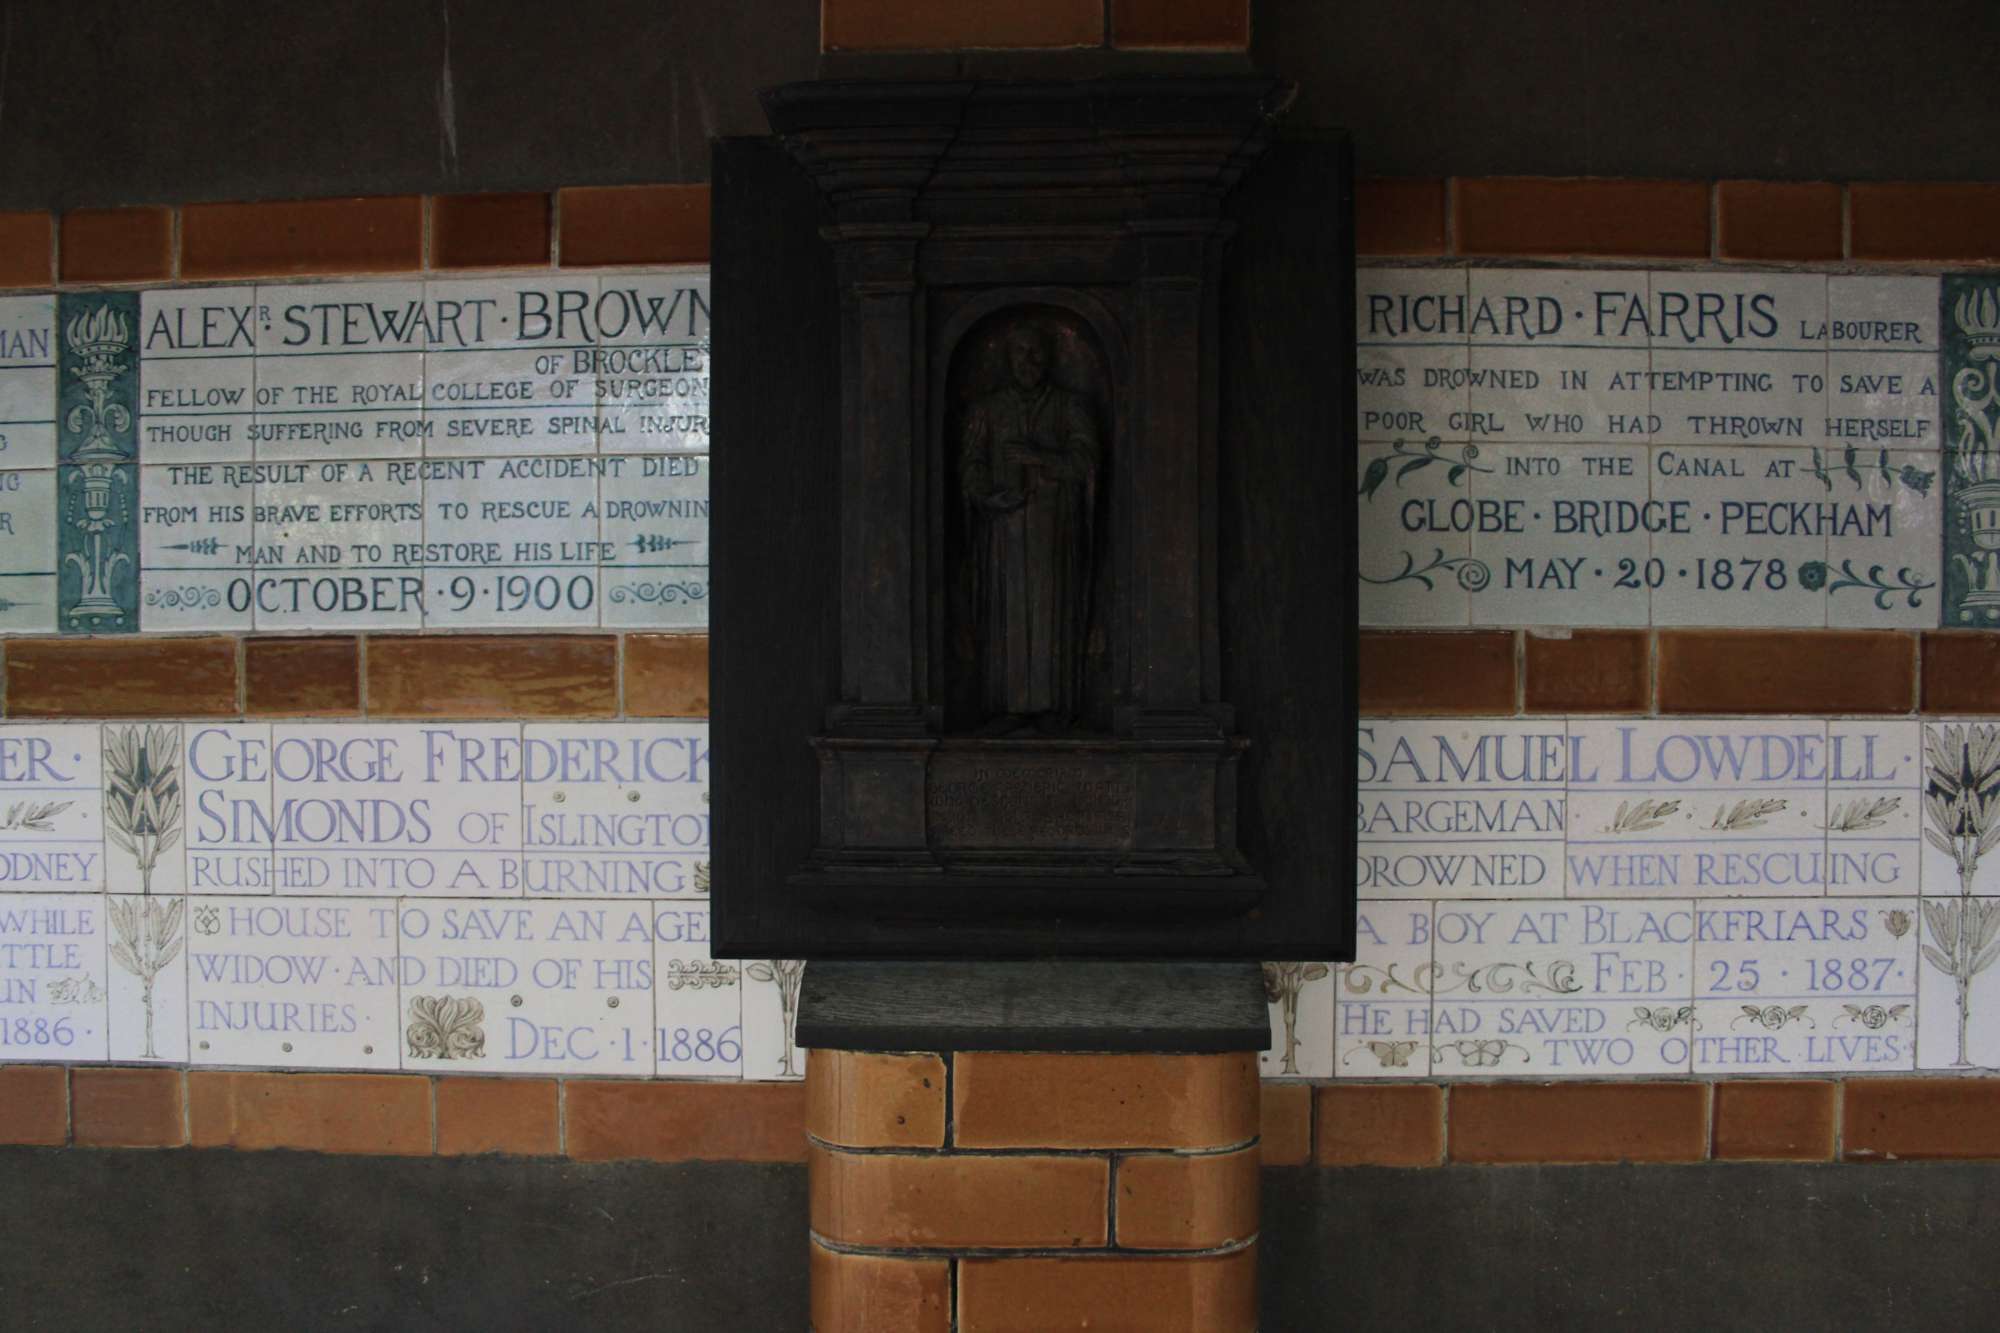 MAN
ALEXR. STEWART · BROWN
OF BROCKLE
FELLOW OF THE ROYAL COLLEGE OF SURGEON
THOUGH SUFFERING FROM SEVERE SPINAL INJUR
THE RESULT OF A RECENT ACCIDENT DIED
FROM HIS BRAVE EFFORTS TO RESCUE A DROWNIN
MAN AND TO RESTORE HIS LIFE
OCTOBER · 9 · 1900
RICHARD · FARRIS LABOURER
WAS DROWNED IN ATTEMPTING TO SAVE A
POOR GIRL WHO HAD THROWN HERSELF
INTO THE CANAL AT
GLOBE · BRIDGE · PECKHAM
MAY · 20 · 1878
ER ·
ODNEY
WHILE
TTLE
UN
1886 ·
GEORGE FREDERICK
SIMONDS OF ISLINGTO
RUSHED INTO A BURNING
HOUSE TO SAVE AN AGE
WIDOW · AND DIED OF HIS
INJURIES ·
DEC · 1 · 1886
IN MEMORIAM
SAMUEL LOWDELL ·
BARGEMAN
DROWNED WHEN RESCUING
A BOY AT BLACKFRIARS
FEB · 25 · 1887 ·
HE HAD SAVED
TWO OTHER LIVES ·